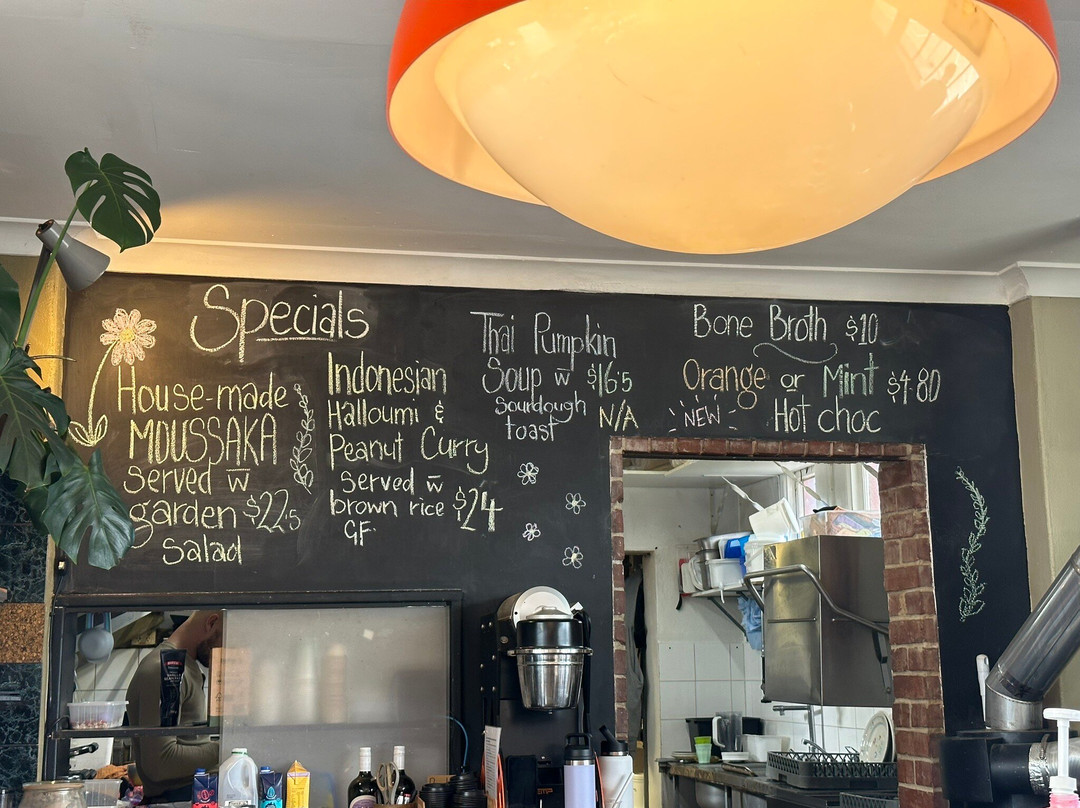 Specials
House-made
MOUSSAKA
served w̅
garden $22.5
salad
Indonesian
Halloumi &
Peanut Curry
served w̅
brown rice $24
GF.
Thai Pumpkin
Soup w̅ $16.5
sourdough
toast N/A
Bone Broth $10
Orange or Mint $4.80
NEW Hot choc